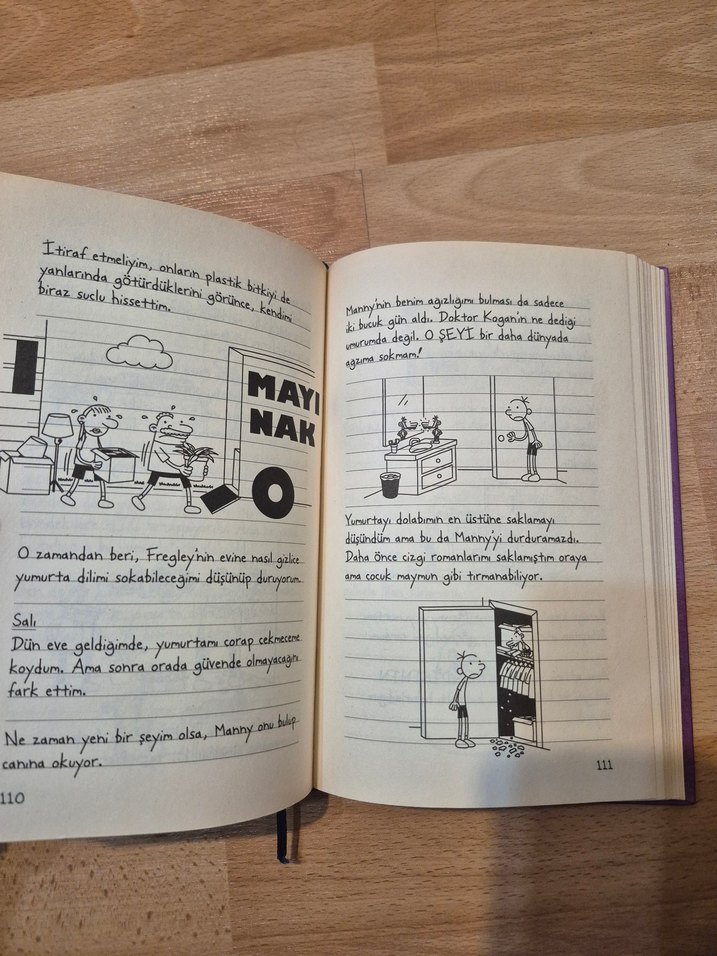 İtiraf etmeliyim, onların plastik bitkiyi de
yanlarında götürdüklerini görünce, kendimi
biraz suçlu hissettim.
MAYI
NAK
O zamandan beri, Fregley'nin evine nasıl gizlice
yumurta dilimi sokabileceğimi düşünüp duruyorum.
Salı
Dün eve geldiğimde, yumurtamı çorap çekmeceme
koydum. Ama sonra orada güvende olmayacağını
fark ettim.
Ne zaman yeni bir şeyim olsa, Manny onu bulup
canına okuyor.
110
Manny'nin benim ağızlığımı bulması da sadece
iki buçuk gün aldı. Doktor Kogan'ın ne dediği
umurumda değil. O ŞEYİ bir daha dünyada
ağzıma sokmam!
Yumurtayı dolabımın en üstüne saklamayı
düşündüm ama bu da Manny'yi durduramazdı.
Daha önce çizgi romanlarımı saklamıştım oraya
ama çocuk maymun gibi tırmanabiliyor.
111